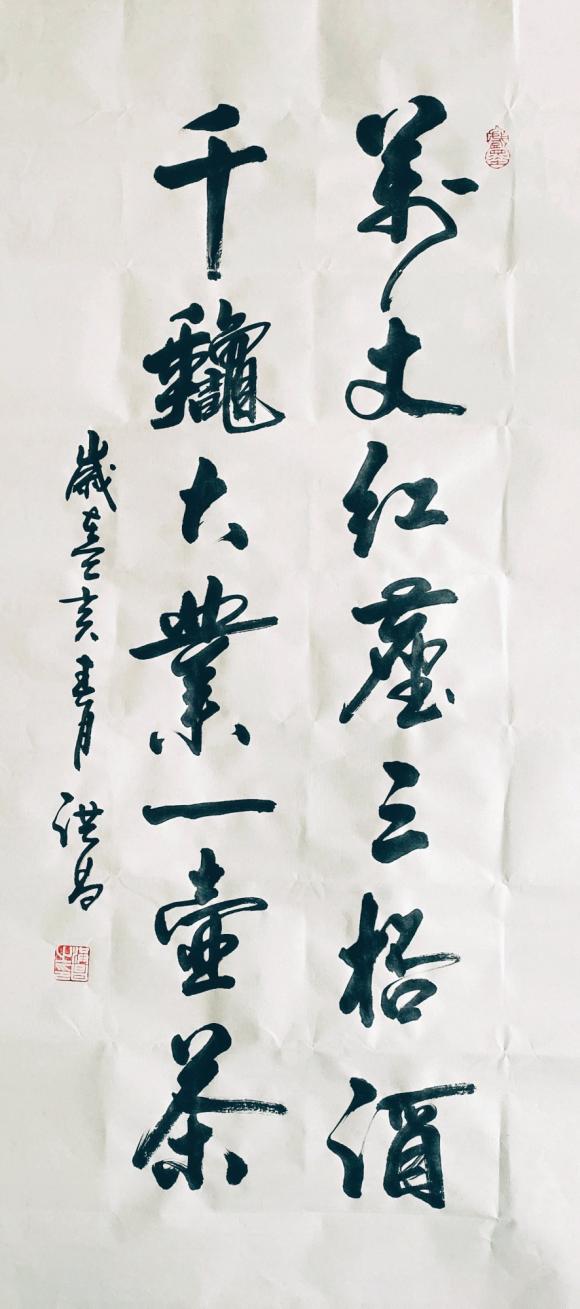 萬丈紅塵三桮酒
千龝大業一壺茶
歲在己亥春月 洪昌